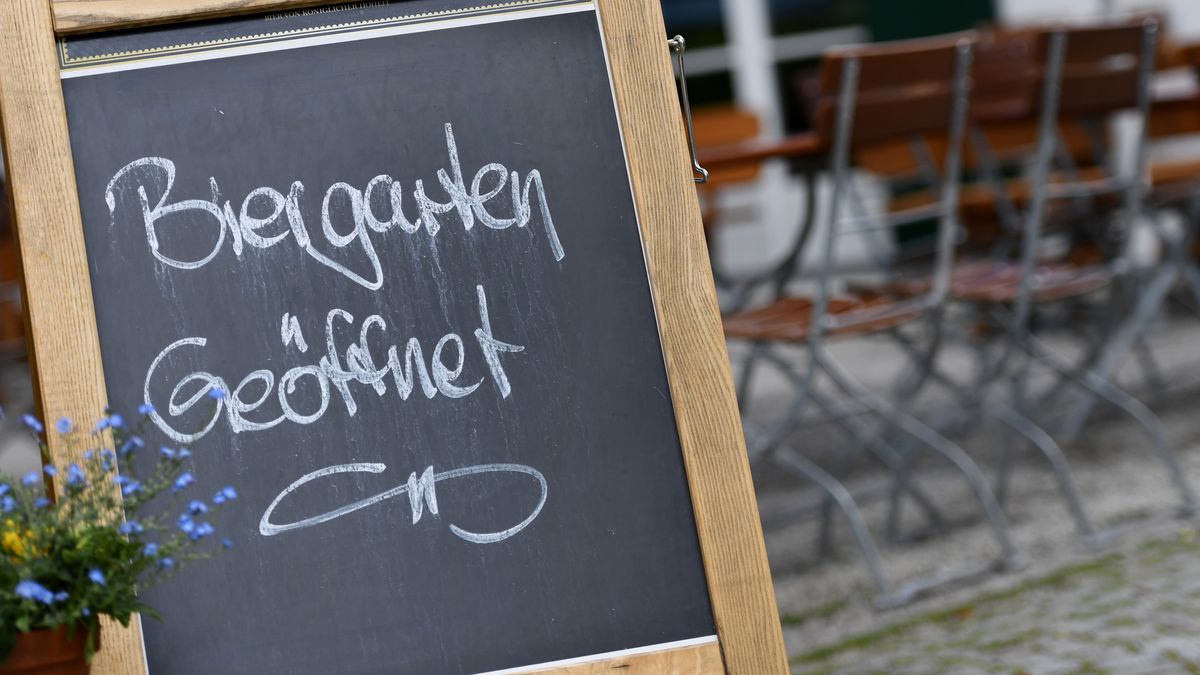 BIER VON KÖNIGLICHER HOHEIT
Biergarten
Geöffnet